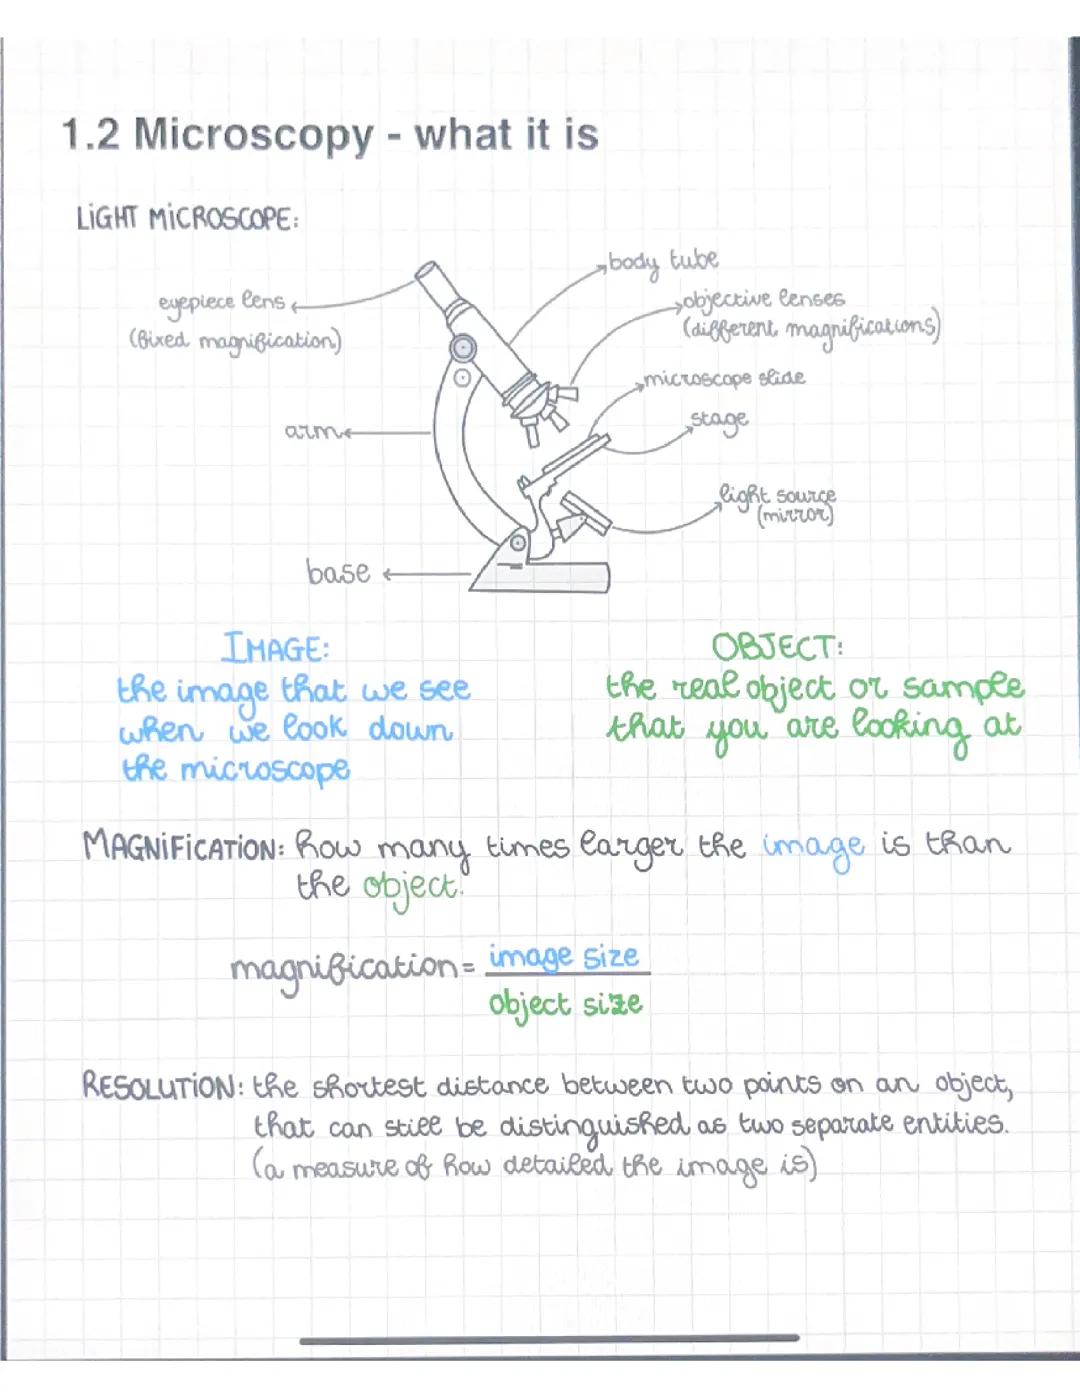 1.2 Microscopy - what it is
LIGHT MICROSCOPE:
body tube
eyepiece lens
(fixed magnification)
objective lenses
(different magnifications)
microscope slide
stage
arm
light source
(mirror)
base
IMAGE:
the image that we see
when we look down
the microscope
OBJECT:
the real object or sample
that you are looking at
MAGNIFICATION: how many times larger the image is than
the object.
magnification = image size
object size
RESOLUTION: the shortest distance between two points on an object,
that can still be distinguished as two separate entities.
(a measure of how detailed the image is)